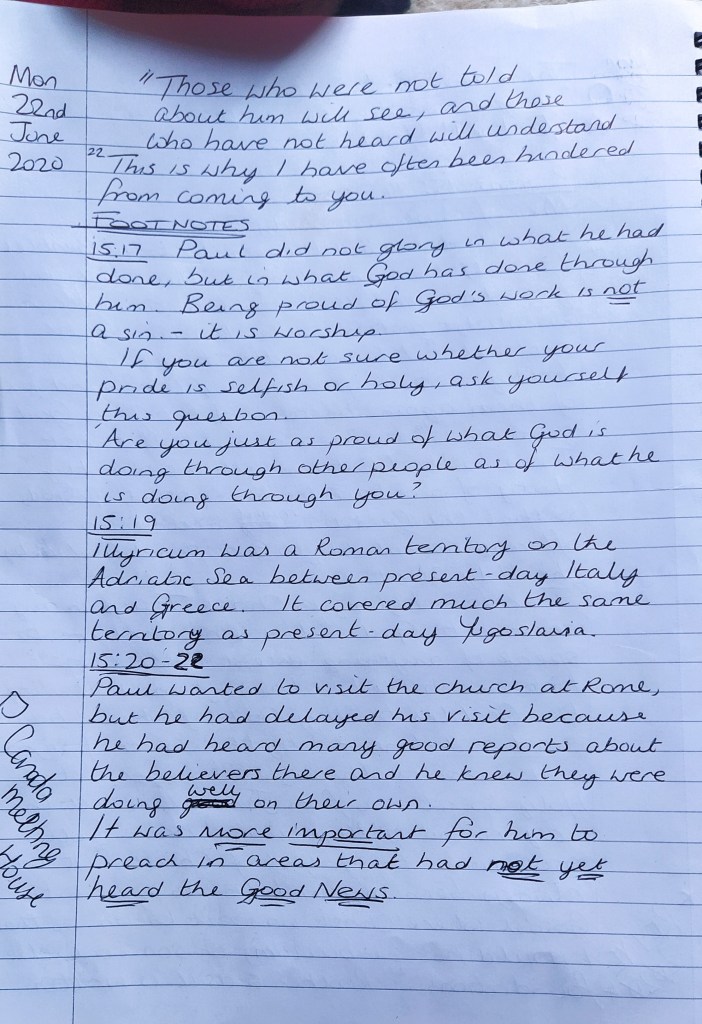 Mon
22nd
June
2020
"Those who were not told
about him will see, and those
who have not heard will understand
22 This is why I have often been hindered
from coming to you.
FOOTNOTES
15.17 Paul did not glory in what he had
done, but in what God has done through
him. Being proud of God's work is not
a sin. - it is worship.
If you are not sure whether your
pride is selfish or holy, ask yourself
this question.
Are you just as proud of what God is
doing through other people as of what he
is doing through you?
15:19
Illyricum was a Roman territory on the
Adriatic Sea between present-day Italy
and Greece. It covered much the same
territory as present-day Yugoslavia.
15:20-22
Paul wanted to visit the church at Rome,
but he had delayed his visit because
he had heard many good reports about
the believers there and he knew they were
doing well on their own.
It was more important for him to
preach in areas that had not yet
heard the Good News.
Canada
meeting
House